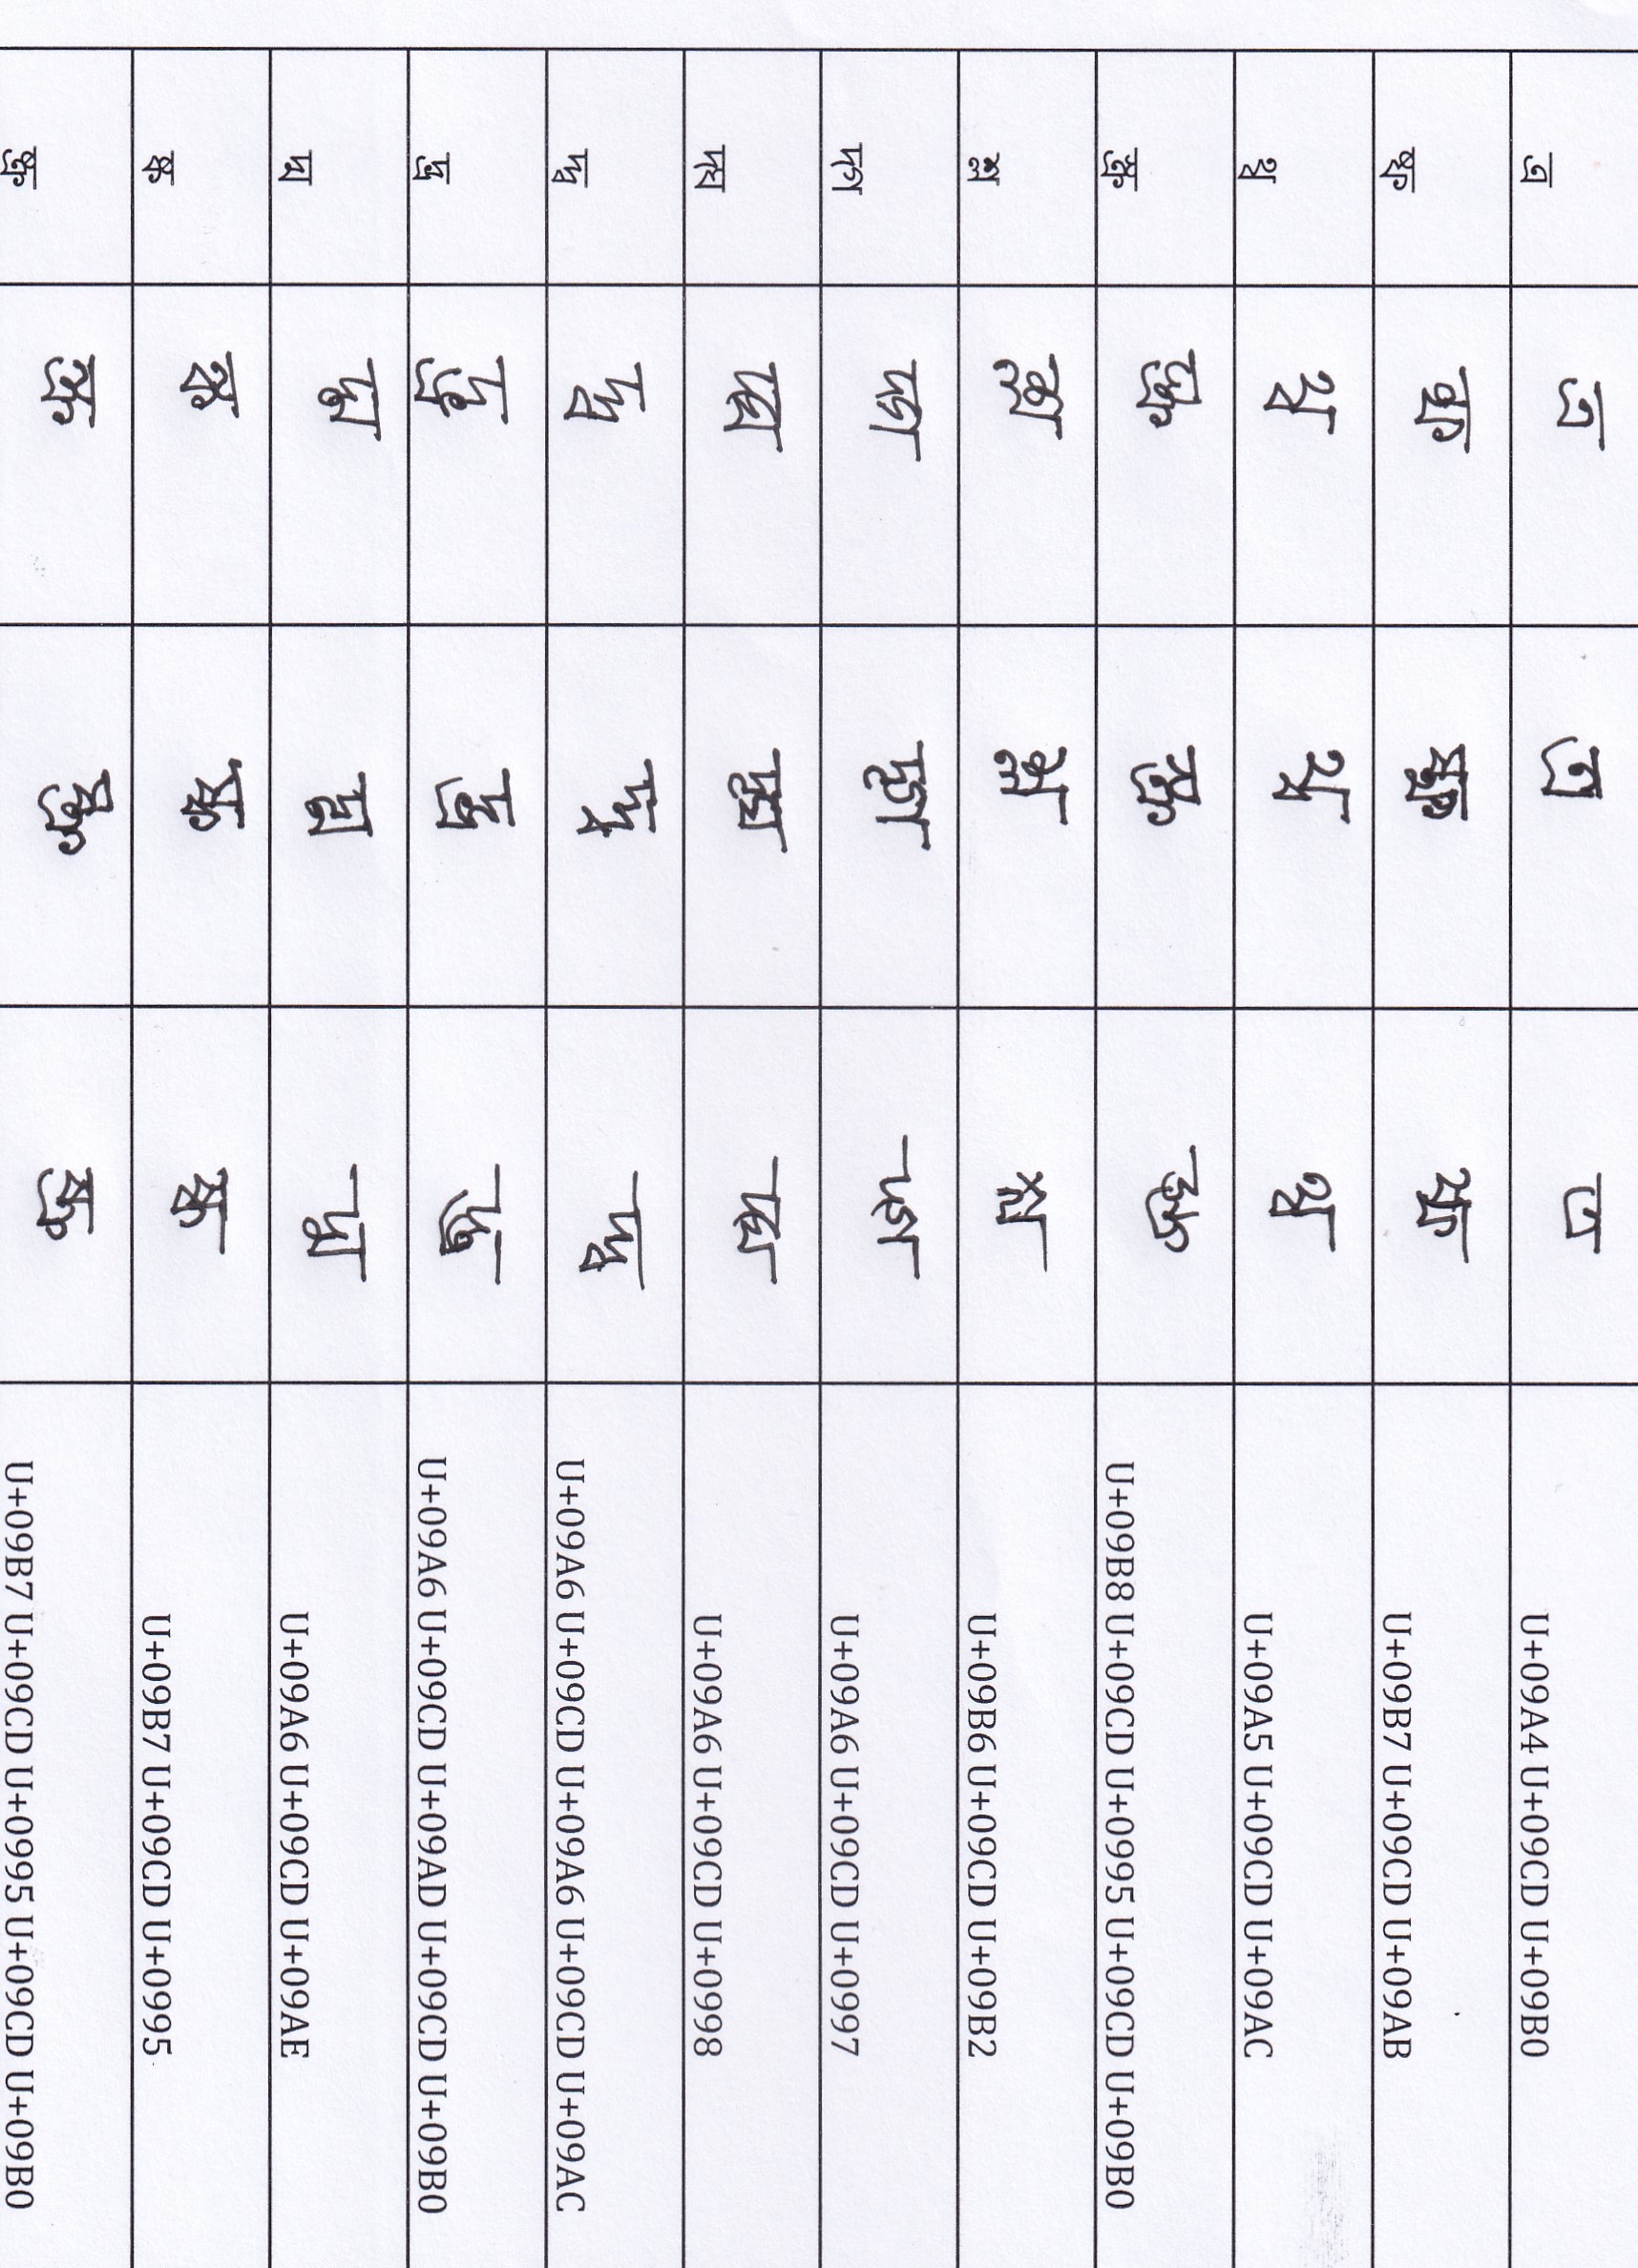 ত্র ত্র ত্র ত্র U+09A4 U+09CD U+09B0
ষ্ফ ষ্ফ ষ্ফ ষ্ফ U+09B7 U+09CD U+09AB
থ্ব থ্ব থ্ব থ্ব U+09A5 U+09CD U+09AC
স্ক্র স্ক্র স্ক্র স্ক্র U+09B8 U+09CD U+0995 U+09CD U+09B0
শ্ল শ্ল শ্ল শ্ল U+09B6 U+09CD U+09B2
দ্গ দ্গ দ্গ দ্গ U+09A6 U+09CD U+0997
দ্ঘ দ্ঘ দ্ঘ দ্ঘ U+09A6 U+09CD U+0998
দ্দ্ব দ্দ্ব দ্দ্ব দ্দ্ব U+09A6 U+09CD U+09A6 U+09CD U+09AC
দ্ভ্র দ্ভ্র দ্ভ্র দ্ভ্র U+09A6 U+09CD U+09AD U+09CD U+09B0
দ্ম দ্ম দ্ম দ্ম U+09A6 U+09CD U+09AE
ষ্ক ষ্ক ষ্ক ষ্ক U+09B7 U+09CD U+0995
ষ্ক্র ষ্ক্র ষ্ক্র ষ্ক্র U+09B7 U+09CD U+0995 U+09CD U+09B0